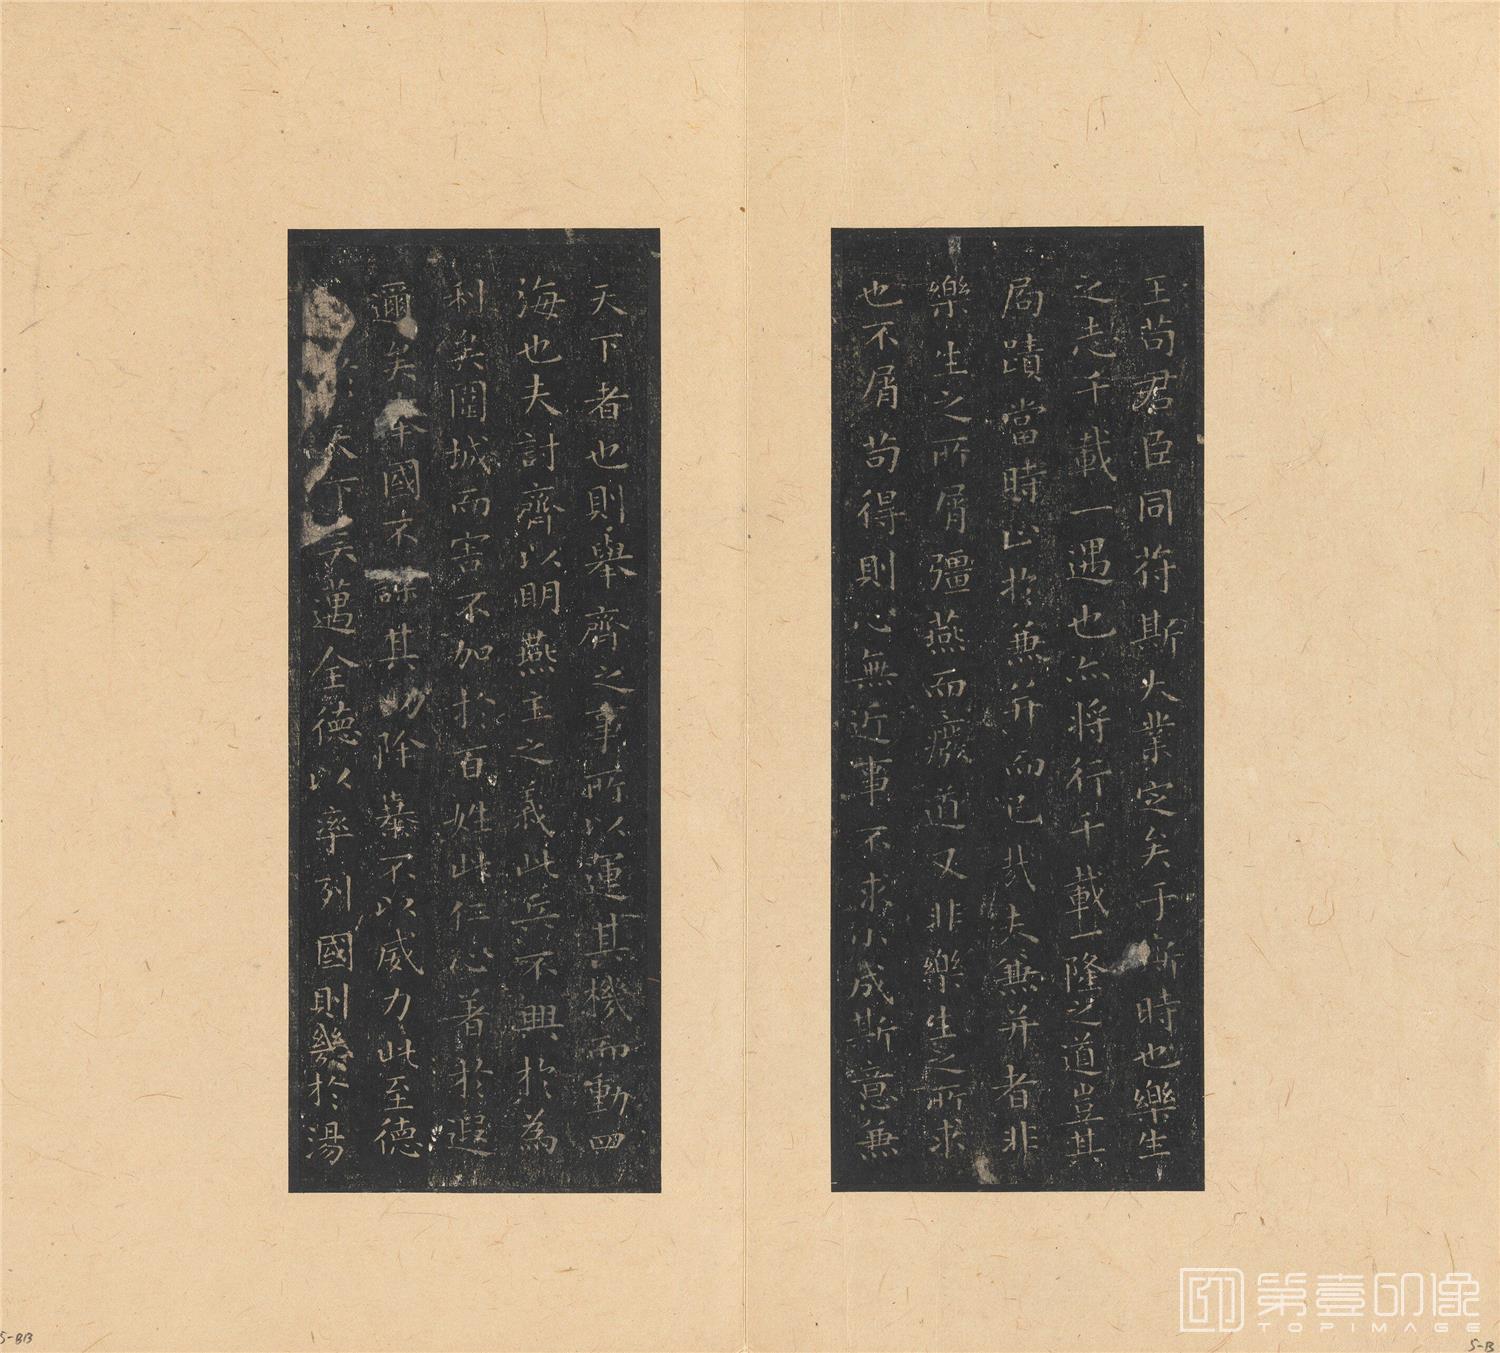 王苟君臣同符斯大業定矣于斯時也樂生
之志千載一遇也亦將行千載一隆之道豈其
局蹟當時止於兼并而已哉夫兼并者非
樂生之所屑彊燕而癈道又非樂生之所求
也不屑苟得則心無近事不求小成斯意兼
天下者也則舉齊之事所以運其機而動四
海也夫討齊以明燕主之義此兵不興於為
利矣圍城而害不加於百姓此仁心著於遐
邇矣本國不謀其功除暴不以威力此至德
於天下矣邁全德以率列國則幾於湯
第壹印像
TOPIMAGE
5-BB
5-B